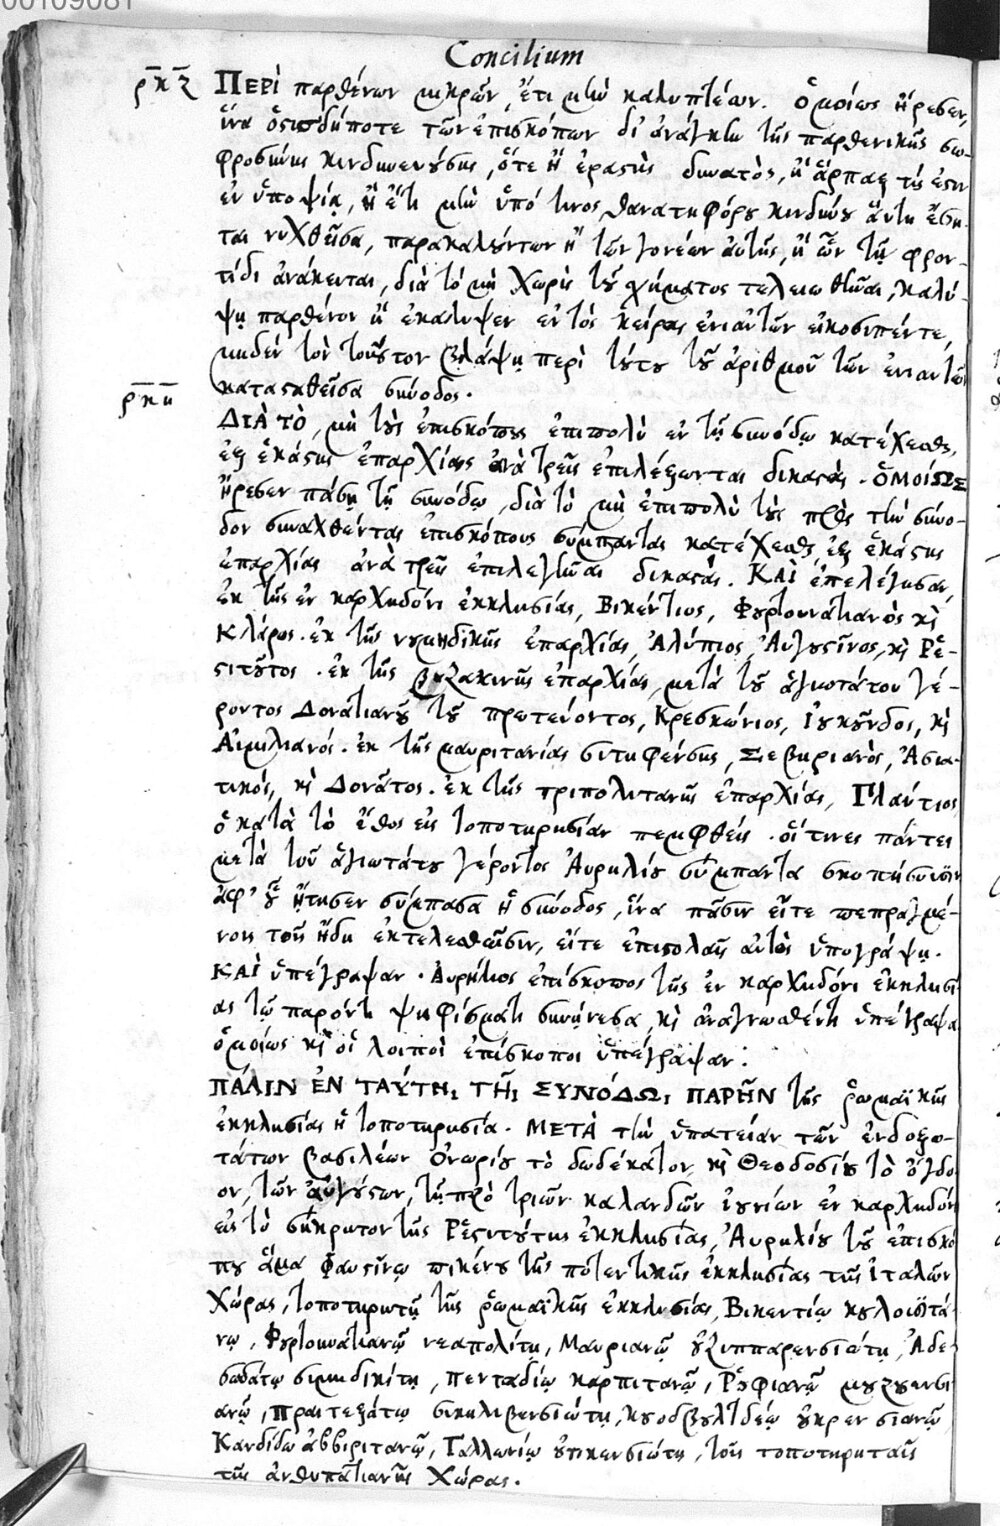 00109081
Concilium
ρκζ ΠΕΡΙ παρθένων μικρῶν, ἔτι μὴν καλυπτέων. ὁμοίως ἤρεσεν,
ἵνα ὁστισδήποτε τῶν ἐπισκόπων δι' ἀνάγκην τῆς παρθενικῆς σω-
φροσύνης κινδυνευούσης, ὅτε ἢ ἐραστὴς δυνατὸς, ἢ ἅρπαξ τίς ἐστιν
ἐν ὑποψίᾳ, ἢ ἔτι μὴν ὑπό τινος θανατηφόρου κινδύνου
ται νυχθεῖσα, παρακαλούντων ἢ τῶν γονέων αὐτῆς, ἢ ὧν τῇ φρον-
τίδι ἀνάκειται, διὰ τὸ μὴ χωρὶς τοῦ σχήματος τελειωθῆναι, καλύ-
ψῃ παρθένον ἢ ἐκάλυψεν ἐντὸς κείρας ἐνιαυτῶν εἰκοσιπέντε,
μηδὲν τὸν τοιοῦτον βλάψῃ περὶ τούτου τοῦ ἀριθμοῦ τῶν ἐνιαυτῶν
καταστθεῖσα σύνοδος.
ρκη
ΔΙΑ ΤΟ, μὴ τοὺς ἐπισκόπους ἐπιπολὺ ἐν τῇ συνόδῳ κατέχεσθαι,
ἐξ ἑκάστης ἐπαρχίας ἀνὰ τρεῖς ἐπιλέξωνται δικαστάς. ὉΜΟΊΩΣ
ἤρεσεν πάσῃ τῇ συνόδῳ, διὰ τὸ μὴ ἐπιπολὺ τοὺς πρὸς τὴν σύνο-
δον συναχθέντας ἐπισκόπους σύμπαντας κατέχεσθαι, ἐξ ἑκάστης
ἐπαρχίας ἀνὰ τρεῖς ἐπιλεγῆναι δικαστάς. ΚΑΙ ἐπελέγησαν,
ἐκ τῆς ἐν καρχηδόνι ἐκκλησίας, Βικέντιος, Φουρτουνατιανὸς κὶ
Κλάρος. ἐκ τῆς νουμηδικῆς ἐπαρχίας, Ἀλύπιος, Αὐγουστῖνος, κὶ Ῥε-
στιτοῦτος. ἐκ τῆς βυζακινῆς ἐπαρχίας, μετὰ τοῦ ἁγιοτάτου γέ-
ροντος Δονατιανοῦ τοῦ πρωτεύοντος, Κρεσκώνιος, Ἰουκοῦνδος, κὶ
Αἰμιλιανός. ἐκ τῆς μαυριτανίας σιτυφένσης, Σεβηριανὸς, Ἀσια-
τικός, κὶ Δονᾶτος. ἐκ τῆς τριπολιτανῆς ἐπαρχίας, Πλαύτιος
ὁ κατὰ τὸ ἔθος εἰς τοποτηρησίαν πεμφθείς. οἵτινες πάντες
μετὰ τοῦ ἁγιωτάτου γέροντος Αὐρηλίου σύμπαντα σκοπήσουσιν
ἀφ' οὗ ᾔτησεν σύμπασα ἡ σύνοδος, ἵνα πᾶσιν εἴτε πεπραγμέ-
νοις τοῖς ἤδη ἐκτελεσθῶσιν, εἴτε ἐπιστολαῖς αὐτὸς ὑπογράψῃ.
ΚΑΙ ὑπέγραψαν. Αὐρήλιος ἐπίσκοπος τῆς ἐν καρχηδόνι ἐκκλησί
ας τῷ παρόντι ψηφίσματι συνῄνεσα, κὶ ἀναγνωσθέντι ὑπέγραψα
ὁμοίως κὶ οἱ λοιποὶ ἐπίσκοποι ὑπέγραψαν:
ΠΆΛΙΝ ἘΝ ΤΑΎΤΗι ΤΗ͂ι ΣΥΝΌΔΩι ΠΑΡΗ͂Ν τῆς ῥωμαϊκῆς
ἐκκλησίας ἡ τοποτηρησία. ΜΕΤᾺ τὴν ὑπατείαν τῶν ἐνδοξω-
τάτων βασιλέων Ὀνωρίου τὸ δωδέκατον, κὶ Θεοδοσίου τὸ ὄγδο-
ον, τῶν αὐγούστων, τῇ πρὸ τριῶν καλανδῶν ἰουνίων ἐν καρχηδόνι
εἰς τὸ σήκρητον τῆς Ῥεστιτούτης ἐκκλησίας, Αὐρηλίου τοῦ ἐπισκό
που ἅμα Φαυστίνῳ πικένου τῆς ποτεντικῆς ἐκκλησίας τῆς ἰταλῶν
χώρας, τοποτηρητῇ τῆς ῥωμαϊκῆς ἐκκλησίας, Βικεντίῳ κουλοιϋτά-
νῳ, Φουρτουνατιανῷ νεαπολίτῃ, Μαυριανῷ οὐζιππαρενσιώτῃ, Ἀδε-
οδάτῳ σιμιδικίτῃ, πενταδίῳ καρπιτανῷ, Ῥουφιανῷ μουζουενσι
ανῷ, πραιτεξάτῳ σικιλιβενσιώτῃ, κουοδβουλτδέῳ οὐκρενσιανῷ,
Κανδίδῳ ἀββιριτανῷ, Γαλλωνίῳ οὐτικενσιώτῃ, τοῖς τοποτηρηταῖς
τῆς ἀνθυπατιανῆς χώρας.